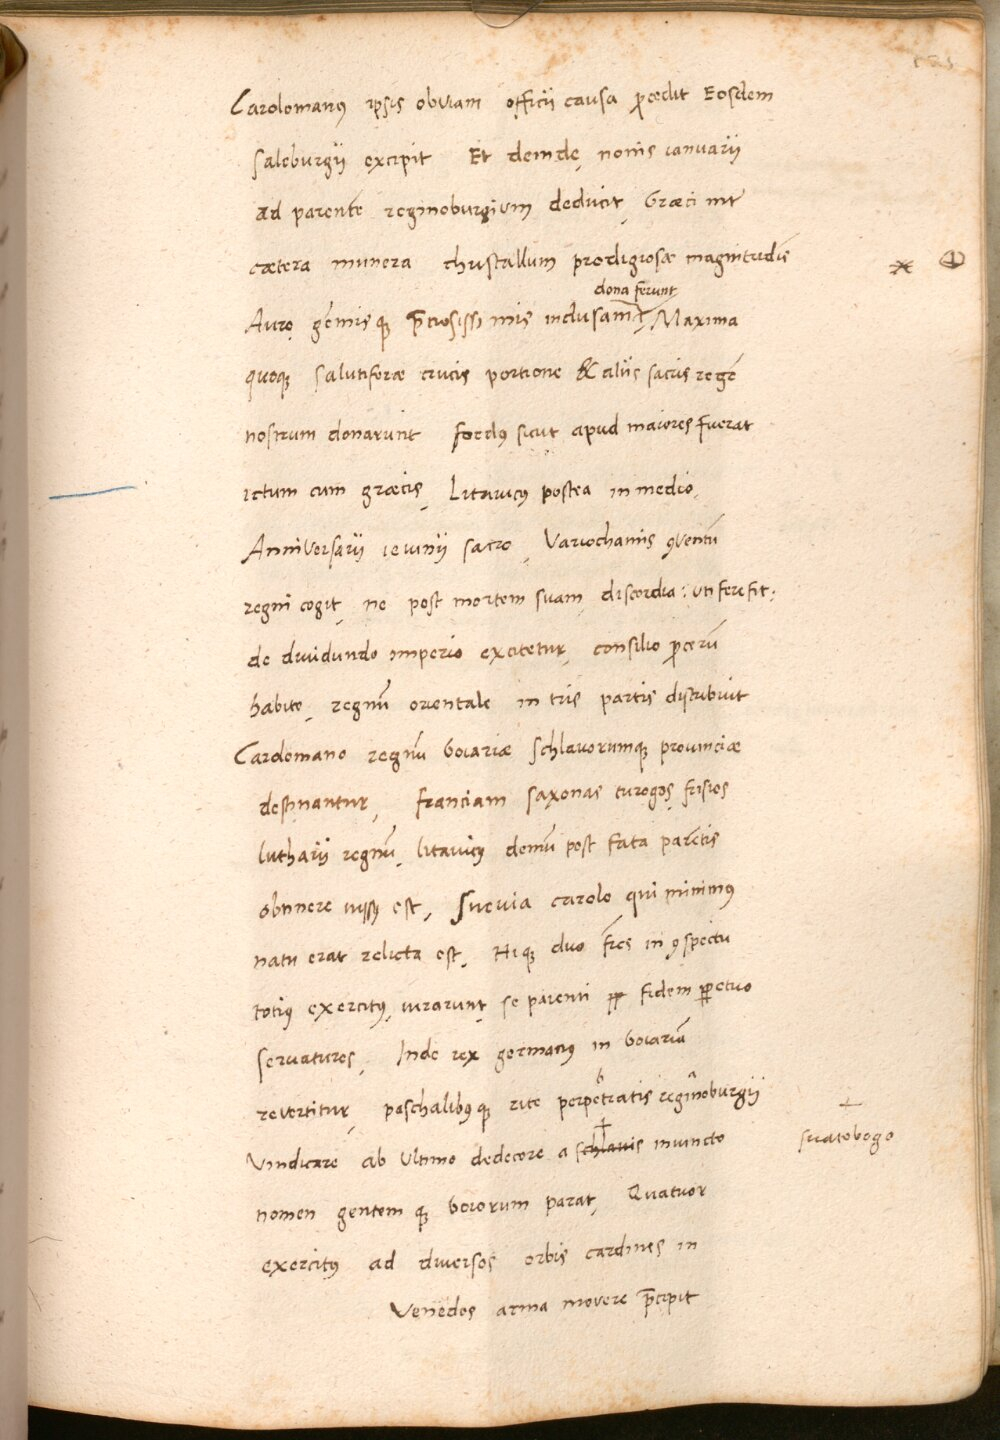 Carolomanꝰ ipsis obviam officii causa ꝓcedit Eosdem
saleburgii excipit Et deinde, nonis ianuarii
ad parentē reginoburgium deducit, Græci int͛
cætera munera christallum prodigiosæ magnitudīs
dona ferunt
Auro gēmisque p̄ciosissimis inclusam, Maxima
quoque salutiferæ crucis portione & aliis sacris regē
nostrum donarunt foedꝰ sicut apud maiores fuerat
ictum cum græcis, Litavicꝰ postea in medio,
Anniversarii ieiunii sacro, Variochamis ꝯventū
regni cogit, ne post mortem suam discordia: uti fere fit:
de dividundo imperio excitetur, consilio ꝓcerū
habito, regnū orientale in tris partis distribuit
Carolomano regnū boiariæ schlavorumque provinciæ
destinantur, franciam saxonas turogos, frisios
lutharii regnū, litavicꝰ demū post fata parētis
obtinere iussꝰ est, Suevia carolo, qui minimꝰ
natu erat relicta est, Hique duo fr̄es in ꝯspectu
totiꝰ exercitꝰ, iurarunt, se parenti ꝑꝑ fidem ꝑpetuo
servatures, Inde rex germanꝰ in boiariā
revertitur, paschalibꝰque rite perpetratis reginoburgii
Vindicare ab ultimo dedecore a schlavis invincto
+
suatobogo
nomen gentemque boiorum parat, Quatuor
exercitꝰ ad diversos orbis cardines in
Venedos arma movere p̄cipit